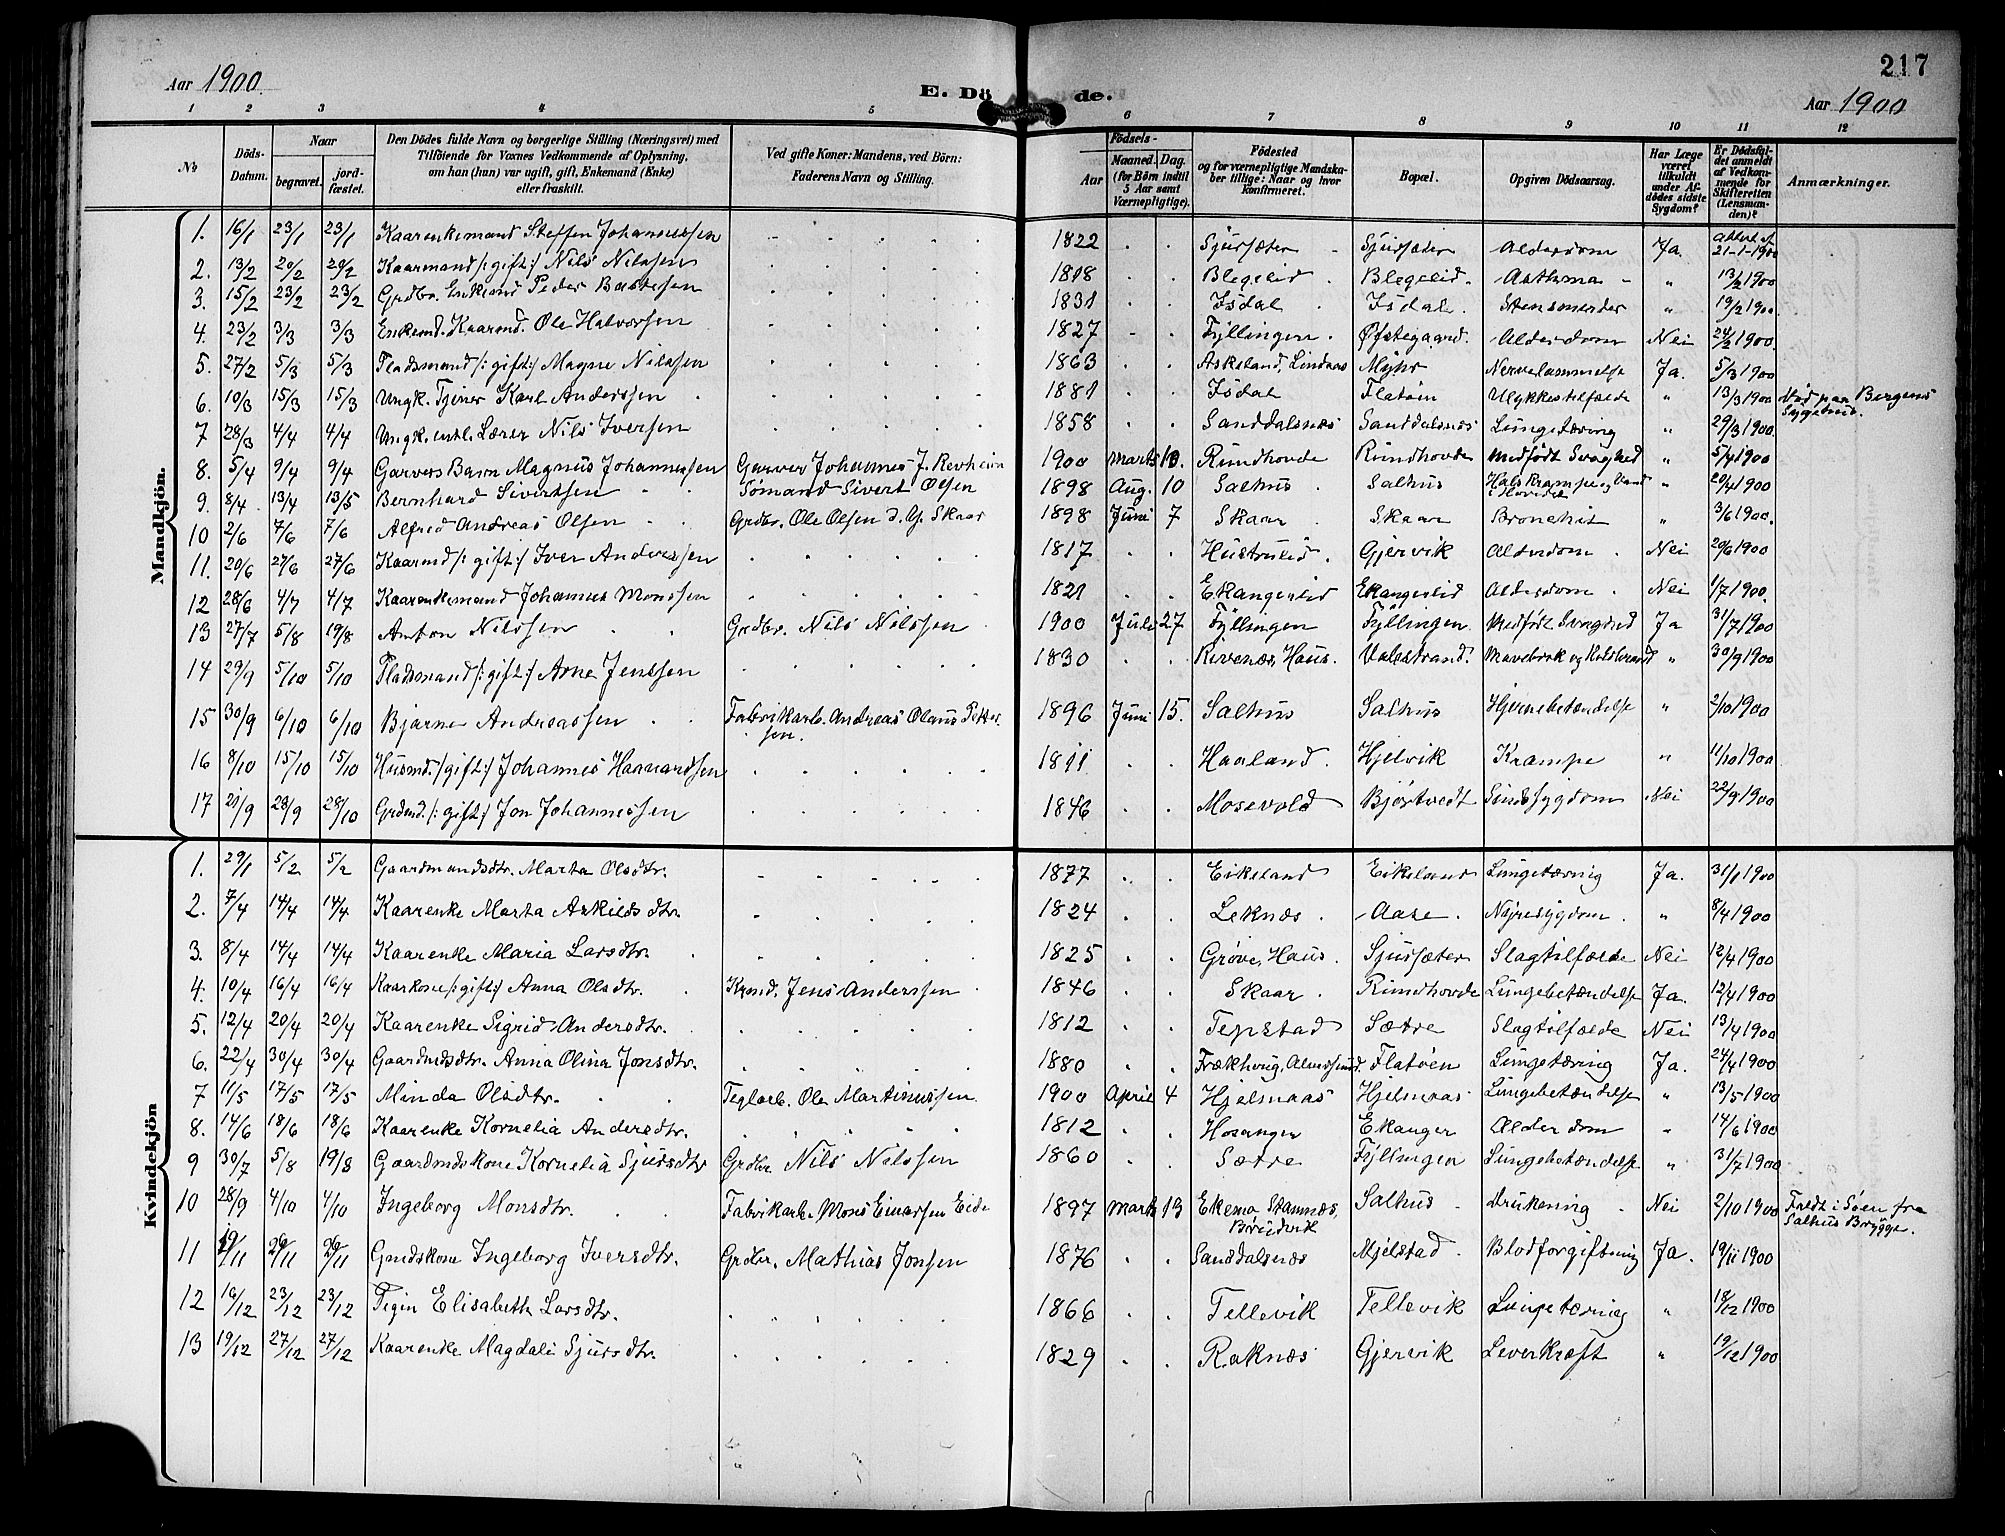 217
Aar 1900. E. Döde. Aar 1900
1 2 3 4 5 6 7 8 9 10 11 12
No
Döds-Datum.
Naar
begravet.
jordfæstet.
Den Dödes fulde Navn og borgerlige Stilling (Næringsvei) med Tilföiende for Voxnes Vedkommende af Oplysning, om han (hun) var ugift, gift, Enkemand (Enke) eller fraskilt.
Ved gifte Koner: Mandens, ved Börn: Faderens Navn og Stilling.
Födsels-
Aar
Maaned. Dag.
(for Börn indtil 5 Aar samt Værnepligtige).
Födested og for værnepligtige Mandskaber tillige: Naar og hvor konfirmeret.
Bopæl.
Opgiven Dödsaarsag.
Har Læge været tilkaldt under Afdödes sidste Sygdom?
Er Dödsfaldet anmeldt af Vedkommende for Skifteretten (Lensmanden)?
Anmærkninger.
Mandkjön.
1. 16/1 23/1 23/1 Kaarenkemand Steffen Johannessen 1822 Sjursæter Sjursæter Alderdom Ja. Attest af 21-1-1900
2. 13/2 20/2 20/2 Kaarmand /: gift :/ Nils Nilssen 1818 Blegelid Blegelid Asthma " 13/2 1900
3. 15/2 23/2 23/2 Grdbr. Enkemd Peder Bastesen 1831 Isdal Isdal. " 19/2 1900
4. 23/2 3/3 3/3 Enkemd. Kaarmd. Ole Halvorsen 1827 Fyllingen. Øfstegaard. Alderdom Nei 24/2 1900.
5. 27/2 5/3 5/3 Pladsmand /: gift :/ Magne Nilssen 1863 Askeland, Lindaas Myhr Nervelammelse Ja. 5/3 1900
6. 10/3 15/3 15/3 Ungk. Tjener Karl Anderssen 1881 Isdal Flatøen Ulykkestilfælde " 13/3 1900 Død paa Bergens Sygehus.
7 28/3 4/4 4/4 Ungk. Lærer Nils Iversen 1858 Sanddalsnæs Sanddalsnæs Lungetæring " 29/3 1900.
8. 5/4 9/4 9/4 Garvers Barn Magnus Johannessen Garver Johannes J. Revheim 1900 Marts 10. Rundhovde Rundhovde Medfødt Svaghed " 5/4 1900
9. 8/4 13/4 13/5 Bernhard Sivertsen Sømand Sivert Olsen 1898 Aug. 10 Salhus Salhus Halskrampe og Vand i Hovedet " 20/4 1900
10 2/6 7/6 7/6 Alfred Andreas Olsen Grdbr. Ole Olsen d. y. Skaar 1898 Juni 7 Skaar Skaar Bronchit " 3/6 1900.
11. 20/6 27/6 27/6 Kaarmd /: gift :/ Iver Anderssen 1817 Hustrulid. Gjervik Alderdom Nei 20/6 1900
12 28/6 4/7 4/7 Kaarenkemand Johannes Monssen 1821 Ekangerlid Ekangerlid Alderdom Nei 1/7 1900.
13 27/7 5/8 19/8 Anton Nilssen Grdbr. Nils Nilssen 1900 Juli 27 Fyllingen Fyllingen Medfødt Svaghed Ja 31/7 1900
14 29/9 5/10 5/10 Pladsmand /: gift :/ Arne Jenssen 1830 Rivenæs, Haus. Valestrand. Mavebrok og Koldbrand " 30/9 1900
15 30/9 6/10 6/10 Bjarne Andreassen Fabrikarb. Andreas Olaus Pettersen. 1896 Juni 15. Salhus Salhus Hjernebetændelse " 2/10 1900
16 8/10 15/10 15/10 Husmd. /: gift :/ Johannes Haavardsen 1811 Haaland. Hjelvik Krampe " 11/10 1900
17 21/9 28/9 28/10 Grdmd. /: gift :/ Jon Johannessen 1846 Mosevold Bjørtvedt Sindssygdom Nei 22/9 1900
Kvindekjön
1. 29/1 5/2 5/2 Gaardmandsdtr. Marta Olsdtr. 1877 Eikeland Eikeland Lungetæring Ja. 31/1 1900
2. 7/4 14/4 14/4 Kaarenke Marta Askildsdtr. 1824 Leknæs. Aase. Nyresygdom. " 8/4 1900
3. 8/4 14/4 14/4 Kaarenke Maria Larsdtr. 1825 Grøve, Haus. Sjursæter Slagtilfælde Nei 12/4 1900
4. 10/4 16/4 16/4 Kaarkone /: gift :/ Anna Olsdtr. Krmd. Jens Anderssen 1846 Skaar Rundhovde Lungebetændelse Ja. 12/4 1900
5. 12/4 20/4 20/4 Kaarenke Sigrid Andersdtr. 1812 Tepstad Sætre Slagtilfælde Nei 13/4 1900
6. 22/4 30/4 30/4 Gaardmdsdtr. Anna Olina Jonsdtr. 1880 Frækhaug, Alversund. Flatøen Lungetæring Ja. 24/4 1900
7 11/5 17/5 17/5 Minda Olsdtr. Teglarb. Ole Martinussen 1900 April 4 Hjelmaas Hjelmaas Lungebetændelse " 13/5 1900
8. 14/6 18/6 18/6 Kaarenke Kornelia Andersdtr. 1812 Hosanger Ekanger Alderdom " 14/6 1900
9 30/7 5/8 19/8 Gaardmdskone Kornelia Sjursdtr Grdbr Nils Nilssen 1860 Sætre Fyllingen Lungebetændelse " 31/7 1900
10 28/9 4/10 4/10 Ingeborg Monsdtr. Fabrikarb. Mons Einarsen Eide 1897 Marts 13 Ekemo Stamnæs, Bruvik Salhus Drukning Nei 2/10 1900 Faldt i Søen fra Salhus Brygge.
11 19/11 26/11 26/11 Gmdskone Ingeborg Iversdtr. Grdbr. Mathias Jonsen 1876 Sanddalsnæs Mjelstad Blodforgiftning Ja. 19/11 1900
12 16/12 23/12 23/12 Pigen Elisabeth Larsdtr. 1866 Tellevik Tellevik Lungetæring " 18/12 1900
13 19/12 27/12 27/12 Kaarenke Magdali Sjursdtr. 1829 Raknæs Gjervik Leverkræft " 19/12 1900